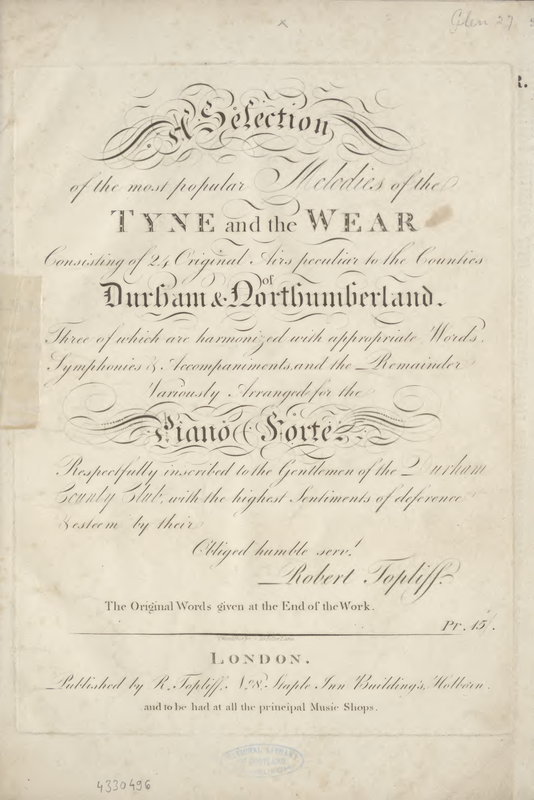 Glen 27
A Selection
of the most popular Melodies of the
TYNE and the WEAR
Consisting of 24 Original Airs peculiar to the Counties
of
Durham & Northumberland.
Three of which are harmonized with appropriate Words.
Symphonies & Accompaniments, and the Remainder
Variously Arranged for the
Piano Forte
Respectfully inscribed to the Gentlemen of the Durham
County Club, with the highest Sentiments of deference
& esteem by their
Obliged humble servt.
Robert Topliff.
The Original Words given at the End of the Work.
Pr. 15/.
LONDON.
Published by R. Topliff, No. 8, Staple Inn Buildings, Holborn.
and to be had at all the principal Music Shops.
4330496